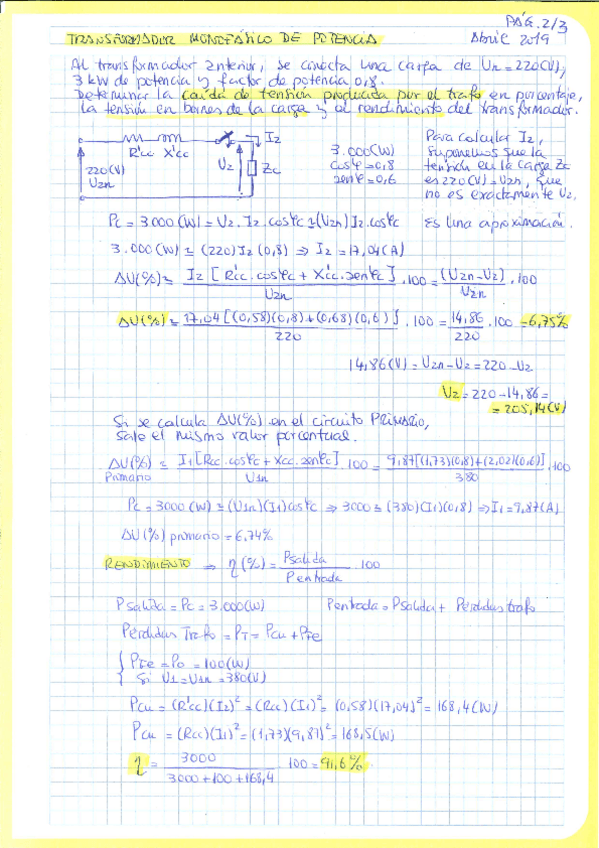 PÁG. 2/3
TRANSFORMADOR MONOFÁSICO DE POTENCIA Abril 2019
Al transformador anterior, se conecta una carga de Un = 220 (V),
3 kW de potencia y factor de potencia 0,8.
Determinar la caída de tensión producida por el trafo en porcentaje,
la tensión en bornes de la carga y el rendimiento del transformador.
R'cc X'cc I2
220 (V)
U2n
U2 Zc
3.000 (W)
cosφc = 0,8
senφc = 0,6
Para calcular I2,
suponemos que la
tensión en la carga Zc
es 220 (V) = U2n, que
no es exactamente U2.
Es una aproximación.
Pc = 3000 (W) = U2 · I2 · cosφc ≃ (U2n) I2 cosφc
3.000 (W) ≃ (220) I2 (0,8) ⇒ I2 = 17,04 (A)
ΔU(%) ≃ I2 [R'cc · cosφc + X'cc · senφc] / U2n · 100 = (U2n - U2) / U2n · 100
ΔU(%) ≃ 17,04 [(0,58)(0,8) + (0,68)(0,6)] / 220 · 100 = 14,86 / 220 · 100 = 6,75%
14,86 (V) = U2n - U2 = 220 - U2
U2 = 220 - 14,86 =
= 205,14 (V)
Si se calcula ΔU(%) en el circuito PRIMARIO,
sale el mismo valor porcentual.
ΔU(%) Primario ≃ I1 [Rcc · cosφc + Xcc · senφc] / U1n · 100 = 9,87 [(1,73)(0,8) + (2,02)(0,6)] / 380 · 100
Pc = 3000 (W) ≃ (U1n)(I1) cosφc ⇒ 3000 ≃ (380)(I1)(0,8) ⇒ I1 = 9,87 (A)
ΔU(%) primario = 6,74%
RENDIMIENTO ⇒ η(%) = Psalida / Pentrada · 100
Psalida = Pc = 3.000 (W) Pentrada = Psalida + Pérdidas trafo
Pérdidas Trafo = PT = Pcu + PFe
PFe = Po = 100 (W)
Si U1 = U1n = 380 (V)
Pcu = (R'cc)(I2)² = (Rcc)(I1)² = (0,58)(17,04)² = 168,4 (W)
Pcu = (Rcc)(I1)² = (1,73)(9,87)² = 168,5 (W)
η = 3000 / 3000 + 100 + 168,4 · 100 = 91,6%